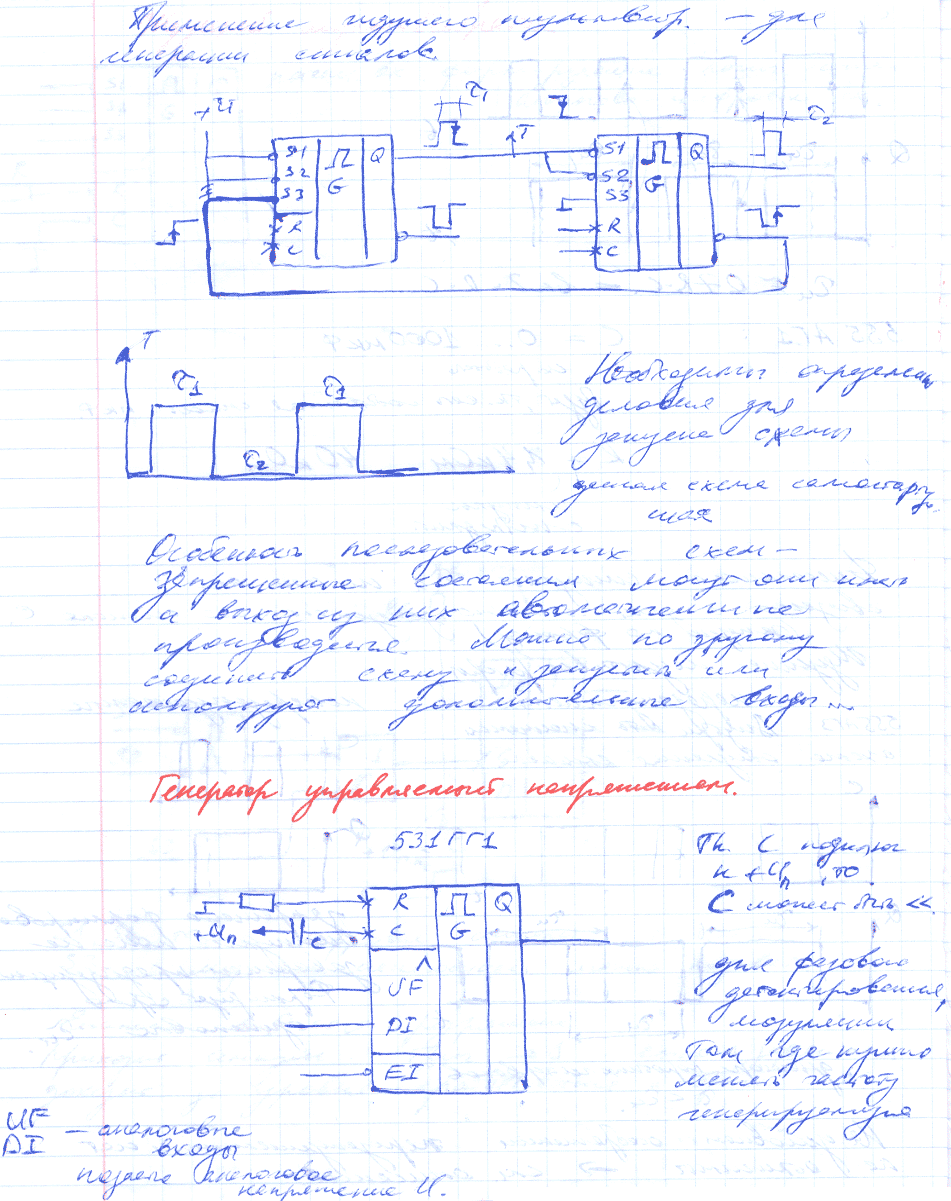 Применение ждущего мультивибр. — для
генерации сигналов
+U
τ1
T
τ2
S1
S2
S3
R
C
G
Q
S1
S2
S3
R
C
G
Q
T
τ1
τ2
τ1
Необходимы определен
условия для
запуска схемы
данная схема самостарту
щая
Особенность последовательных схем —
запрещенные состояния могут они иметь
и выход из них автоматически не
производится. Можно по другому
соединить схему и запустить или
используют дополнительные входы...
Генератор управляемый напряжением.
531ГГ1
R
+Uп
C
C
UF
DI
EI
G
Q
Т.к. C подключ
к +Uп, то
C может быть <<.
для фазового
детектирования,
модуляции
Там где нужно
менять частоту
генерируемую
UF
DI
— аналоговые
входы
подаётся аналоговое
напряжение U.